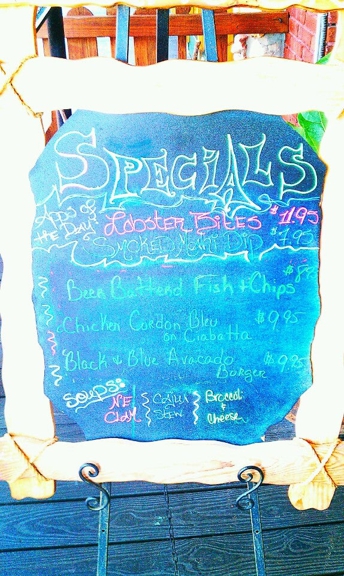 SPECIALS
APPS OF THE DAY LOBSTER BITES $11.95
SMOKED
DIP $7.95
Beer Batterd Fish & Chips
Chicken Cordon Bleu $9.95
on Ciabatta
Black & Blue Avocado $9.95
Burger
SOUPS: NE CLAM
Broccoli & Cheese